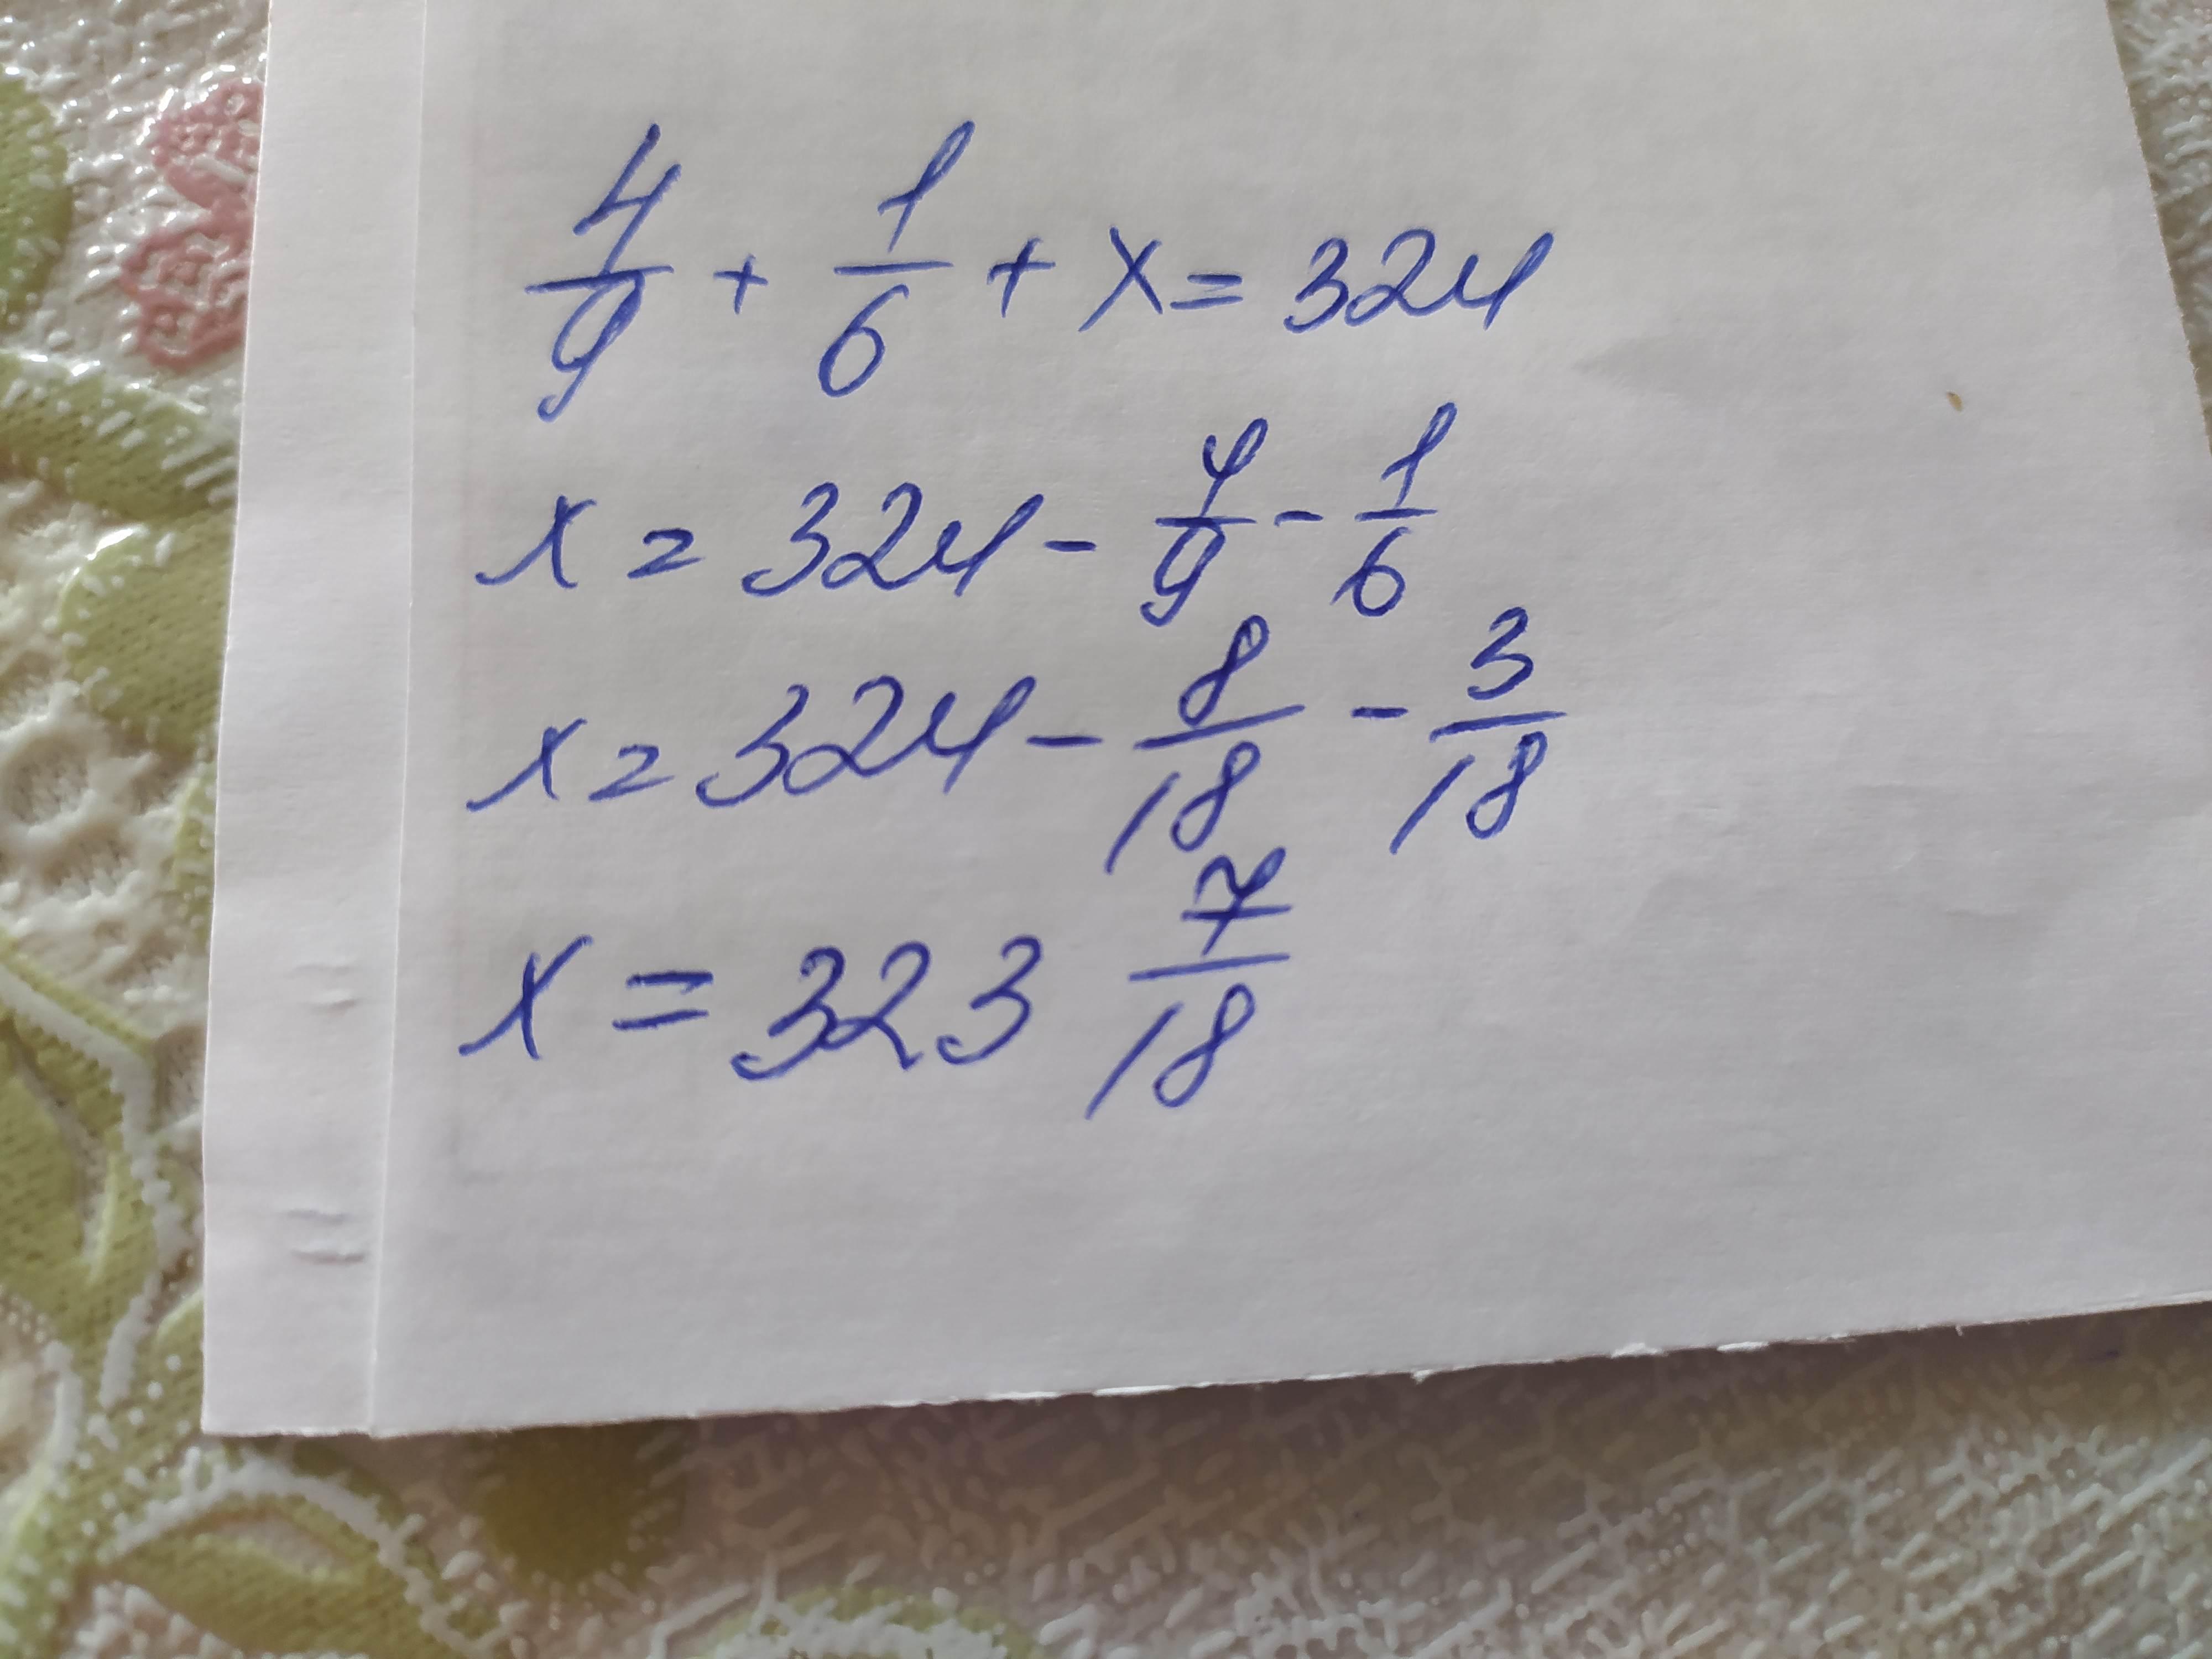 4/9 + 1/6 + x = 324
x = 324 - 4/9 - 1/6
x = 324 - 8/18 - 3/18
x = 323 7/18